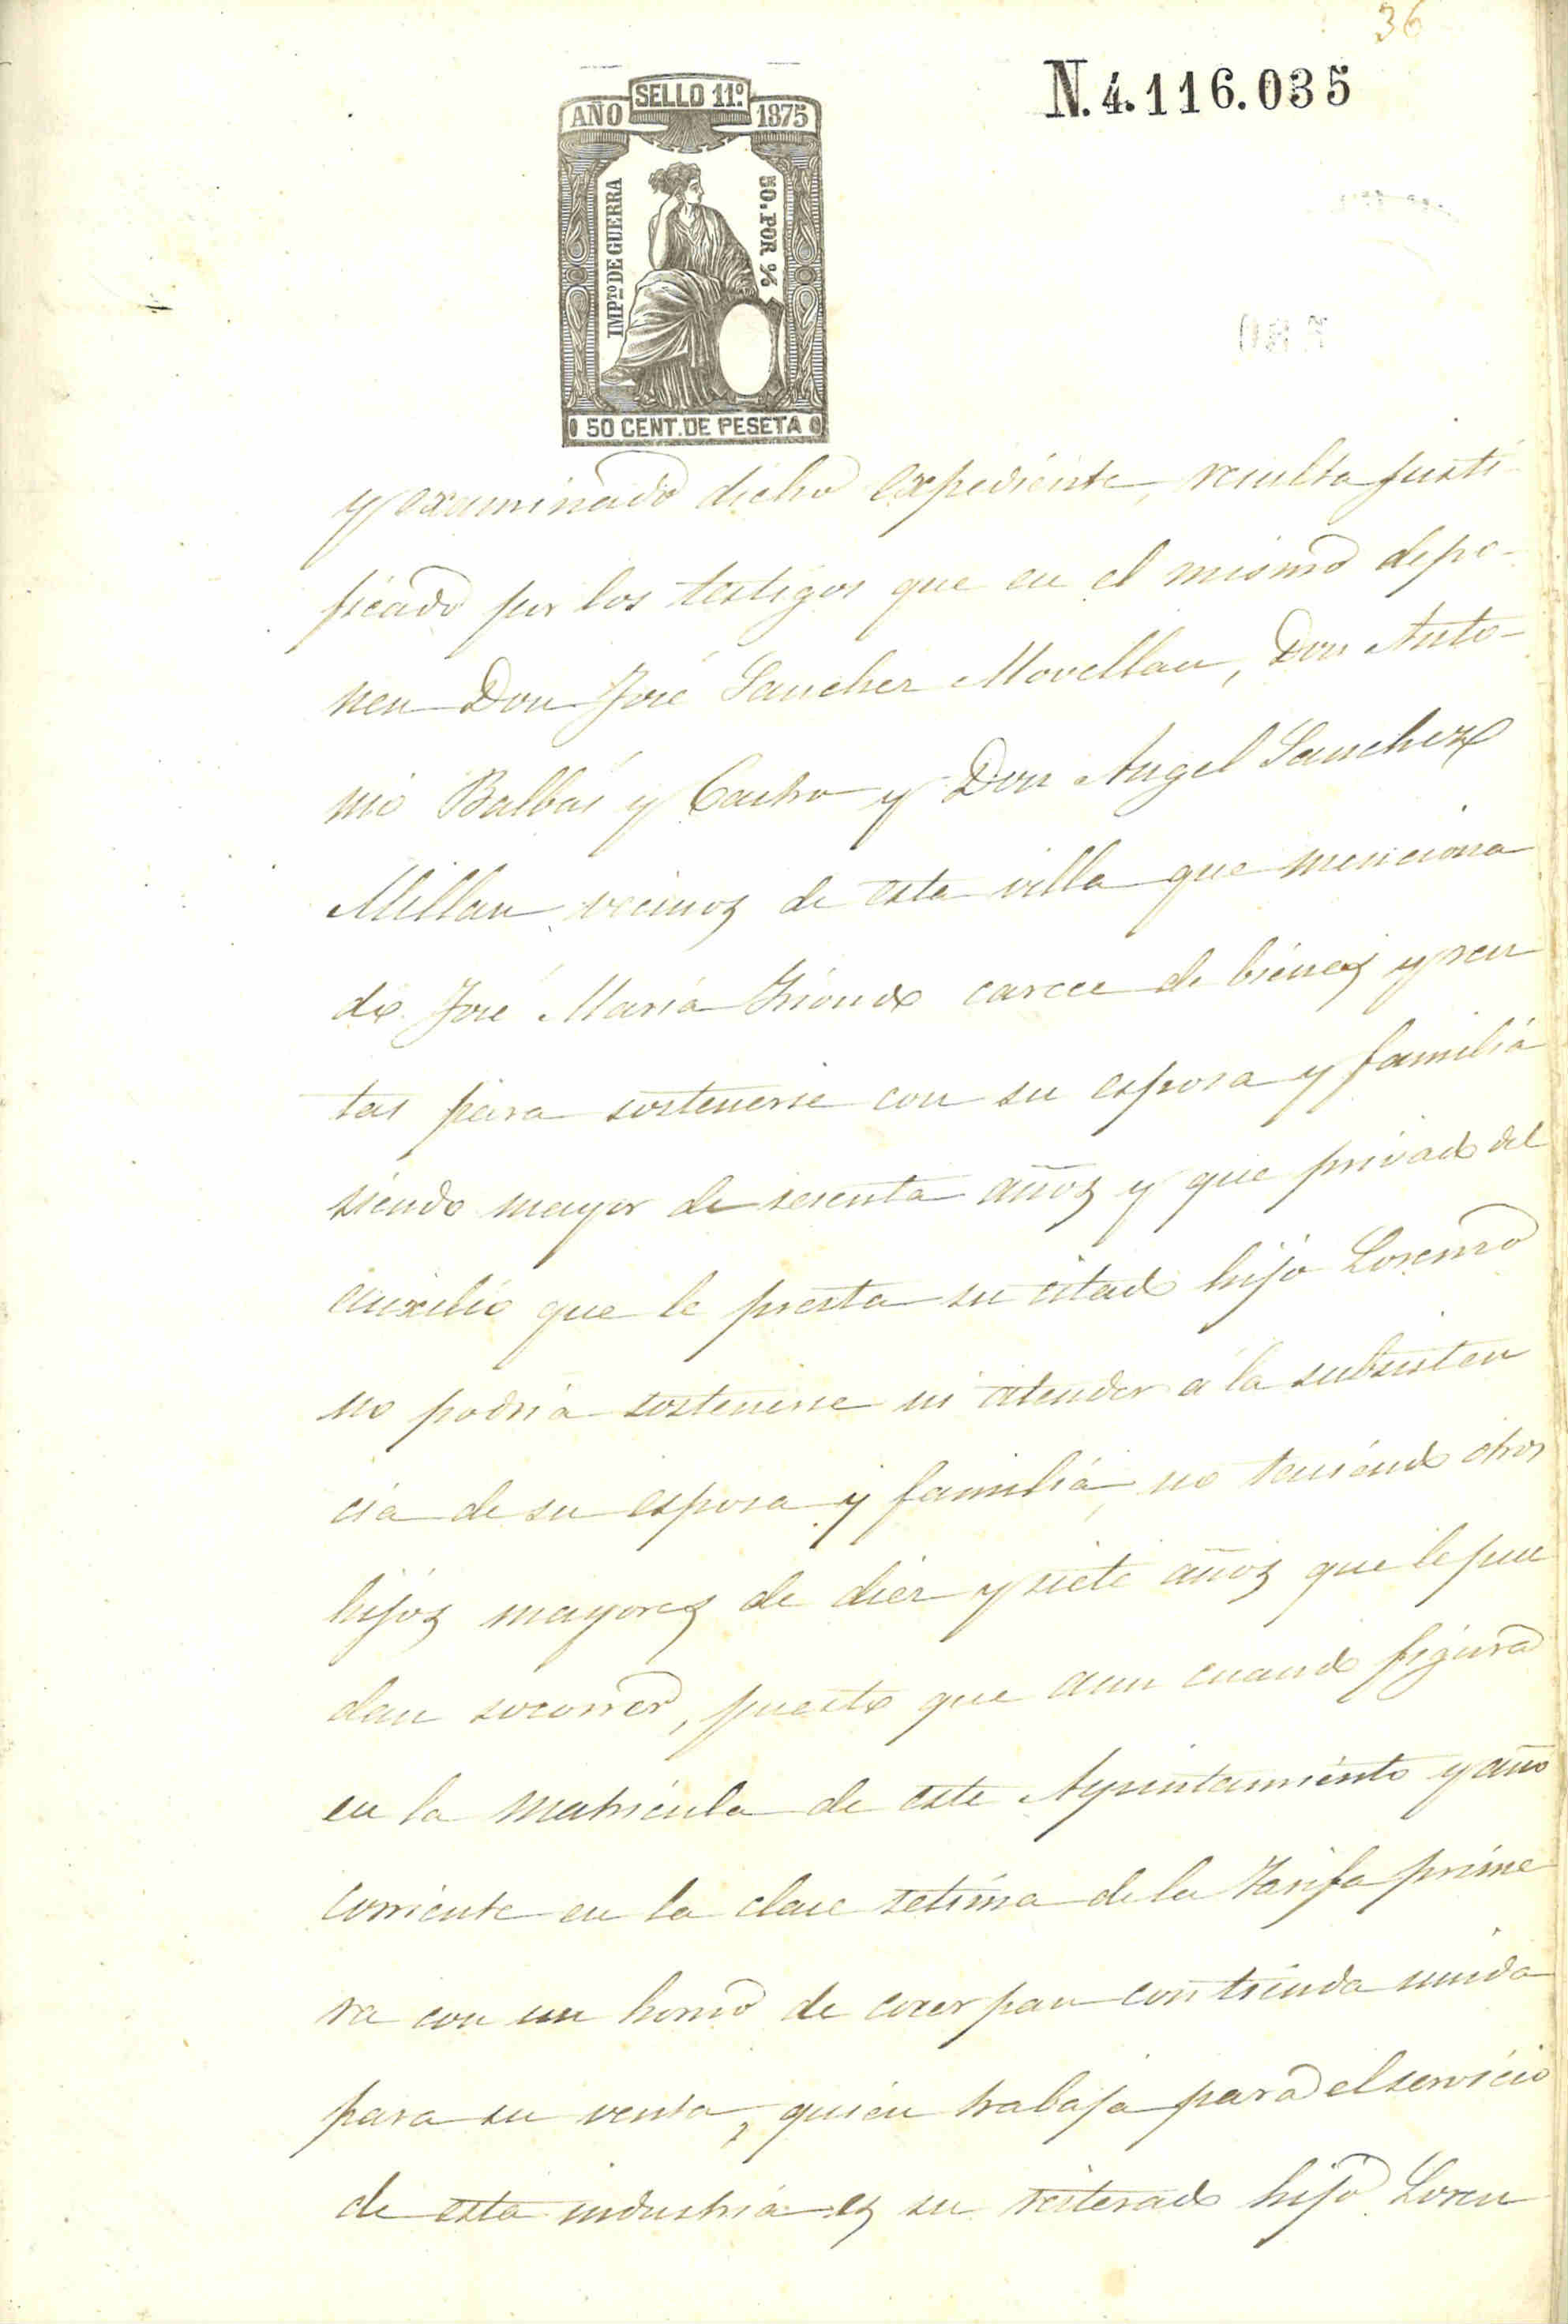 36
N.4.116.035
SELLO 11º
AÑO 1875
IMPTO DE GUERRA
50 POR %
50 CENT. DE PESETA
y examinado dicho expediente, resulta justi-
ficado por los testigos que en el mismo depo-
nen Don José Sanchez Movellan, Don Anto-
nio Balbás y Castro y Don Angel Sanchez
Millan vecinos de esta villa que menciona
do José María Iriondo carece de bienes y ren
tas para sostenerse con su esposa y familia
siendo mayor de sesenta años y que privado del
auxilio que le presta su citado hijo Lorenzo
no podria sostenerse ni atender á la subsisten
cia de su esposa y familia, no teniendo otros
hijos mayores de diez y siete años que le pue
dan socorrer, puesto que aun cuando figura
en la matricula de este Ayuntamiento y año
corriente en la clase setima de la Tarifa prime
ra con un horno de cocer pan con tienda unida
para su venta, quien trabaja para el servicio
de esta industria es su reiterado hijo Loren